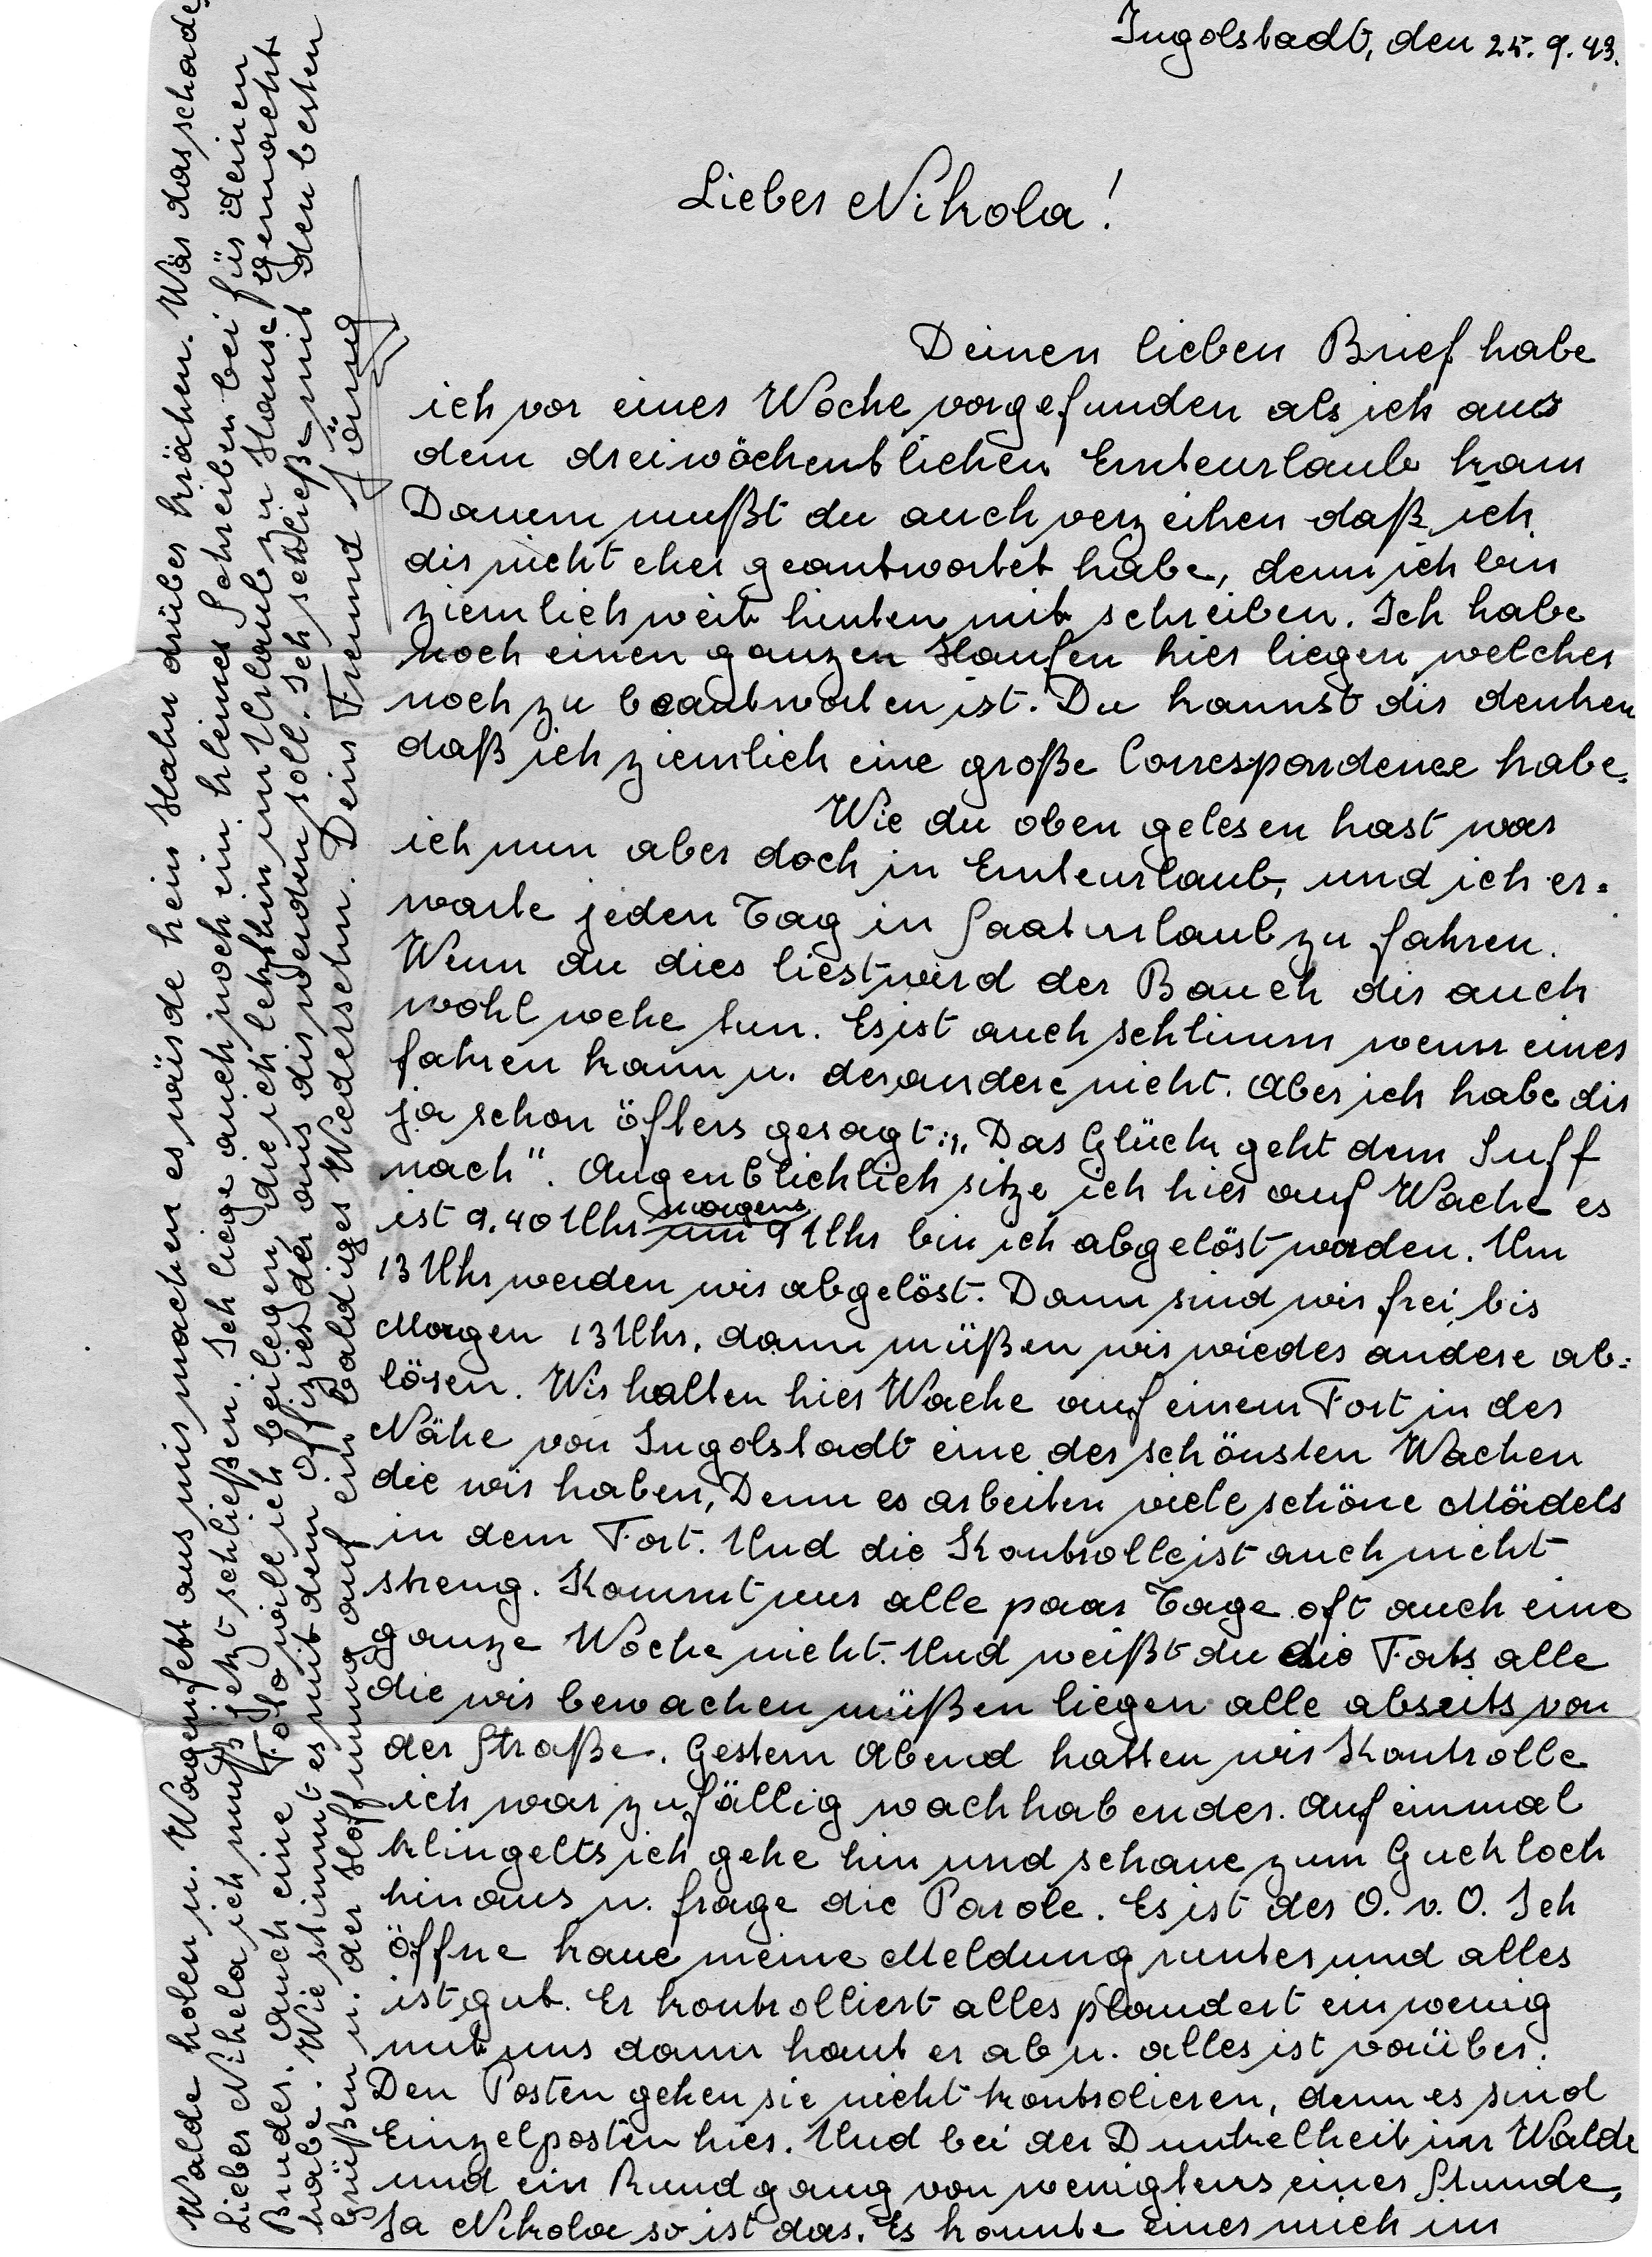 Ingolstadt, den 25. 9. 43.
Lieber Nikola!
Deinen lieben Brief habe
ich vor einer Woche vorgefunden als ich aus
dem dreiwöchentlichen Ernteurlaub kam
Darum mußt du auch verzeihen daß ich
dir nicht eher geantwortet habe, denn ich bin
ziemlich weit hinten mit schreiben. Ich habe
noch einen ganzen Haufen hier liegen welcher
noch zu beantworten ist. Du kannst dir denken
daß ich ziemlich eine große Correspondence habe.
Wie du oben gelesen hast war
ich nun aber doch in Ernteurlaub, und ich er-
warte jeden Tag in Saaturlaub zu fahren.
Wenn du dies liest wird der Bauch dir auch
wohl wehe tun. Es ist auch schlimm wenn einer
fahren kann u. der andere nicht. Aber ich habe dir
ja schon öfters gesagt: „Das Glück geht dem Suff
nach". Augenblicklich sitze ich hier auf Wache es
ist 9.40 Uhr morgens um 9 Uhr bin ich abgelöst worden. Um
13 Uhr werden wir abgelöst. Dann sind wir frei bis
Morgen 13 Uhr, dann müßen wir wieder andere ab-
lösen. Wir halten hier Wache auf einem Fort in der
Nähe von Ingolstadt eine der schönsten Wachen
die wir haben, Denn es arbeiten viele schöne Mädels
in dem Fort. Und die Kontrolle ist auch nicht
streng. Kommt nur alle paar Tage oft auch eine
ganze Woche nicht. Und weißt du die Forts alle
die wir bewachen müßen liegen alle abseits von
der Straße. Gestern Abend hatten wir Kontrolle
ich war zufällig wachhabender. Auf einmal
klingelts ich gehe hin und schaue zum Guckloch
hinaus u. frage die Parole. Es ist der O. v. O. Ich
öffne haue meine Meldung runter und alles
ist gut. Er kontrolliert alles plaudert ein wenig
mit uns dann haut er ab u. alles ist vorüber.
Den Posten gehen sie nicht kontrolieren, denn es sind
Einzelposten hier. Und bei der Dunkelheit im Walde
und ein Rundgang von wenigtens einer Stunde,
Ja Nikola so ist das. Es konnte einer mich im
Walde holen u. Wagenfett aus mir machen es würde kein Hahn drüber krähen. Wär das schade,
Lieber Nikela ich muß jetzt schließen. Ich liege auch noch ein kleines Schreiben bei für deinen
Bruder. Auch eine Foto will ich beilegen, die ich letzthin im Urlaub zu Hause gemacht
habe. Wie stimmt es mit dem Offizier der aus dir werden soll. Ich schließe mit den besten
Grüßen u. der Hoffnung auf ein baldiges Wiedersehn. Dein Freund Jäng